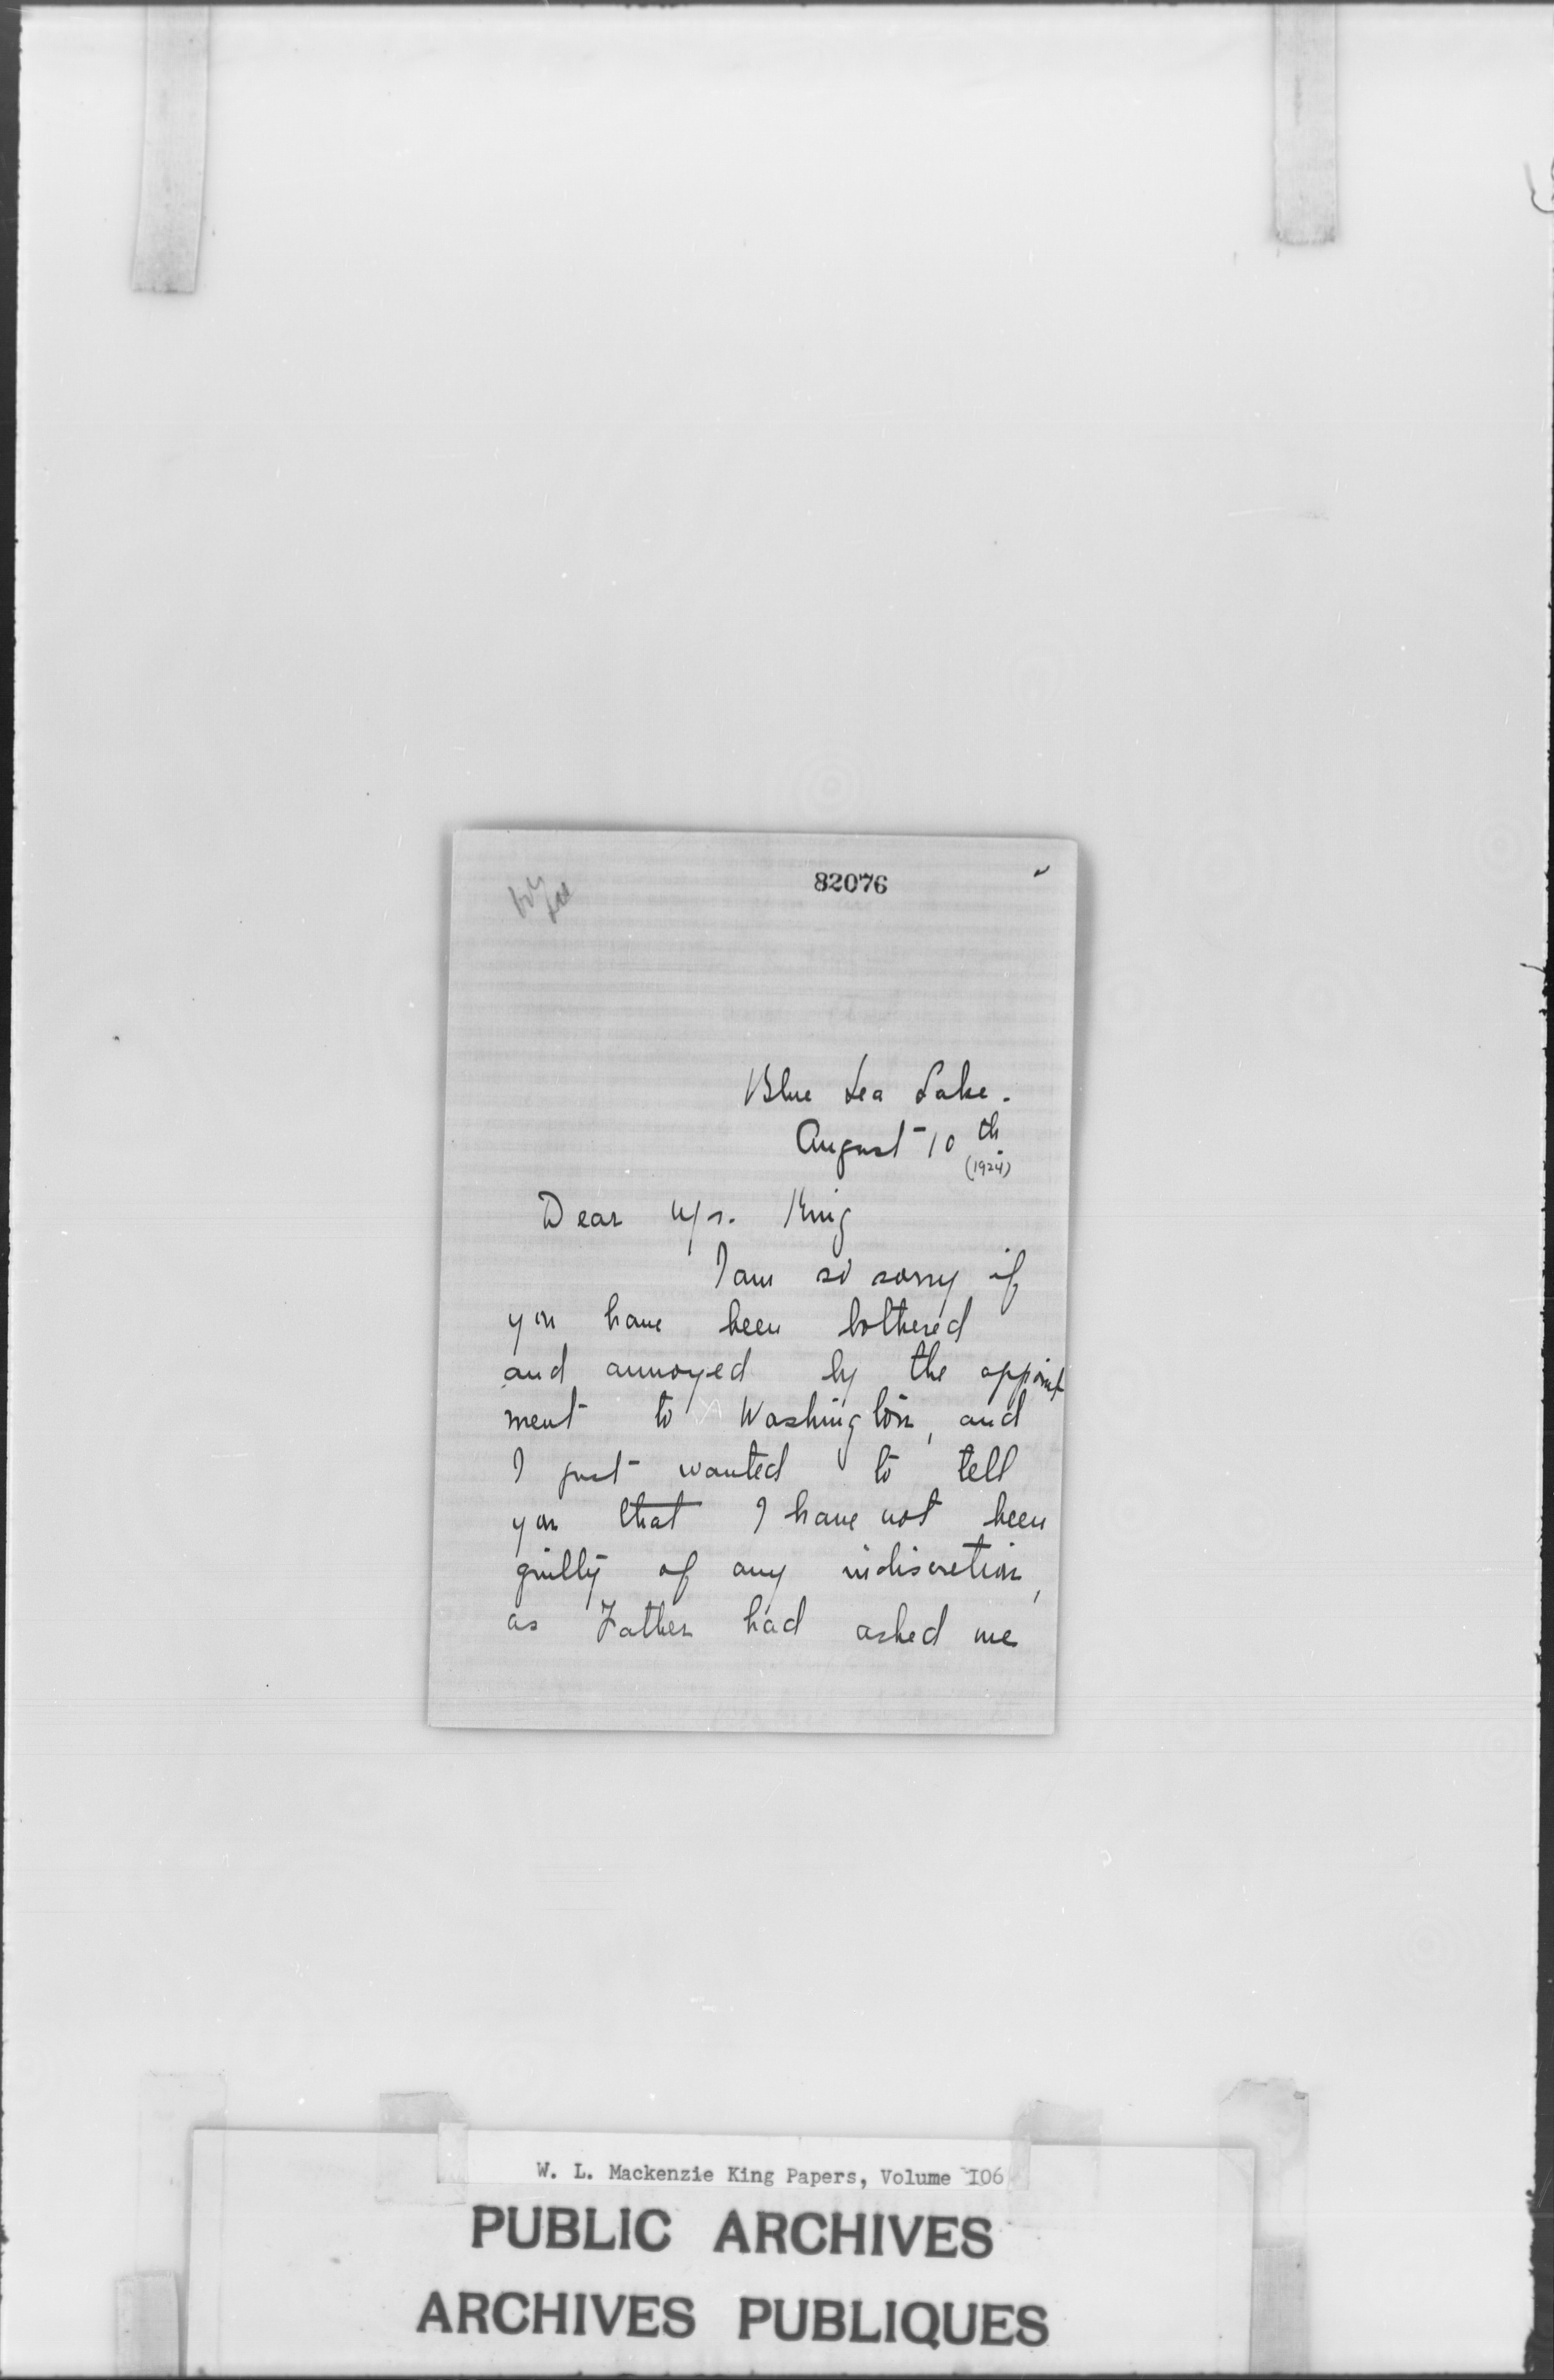 82076
Blue Sea Lake.
August 10th
(1924)
Dear Mr. King
I am so sorry if
you have been bothered
and annoyed by the appoint
ment to Washington, and
I just wanted to tell
you that I have not been
guilty of any indiscretion,
as Father had asked me
W. L. Mackenzie King Papers, Volume 106
PUBLIC ARCHIVES
ARCHIVES PUBLIQUES